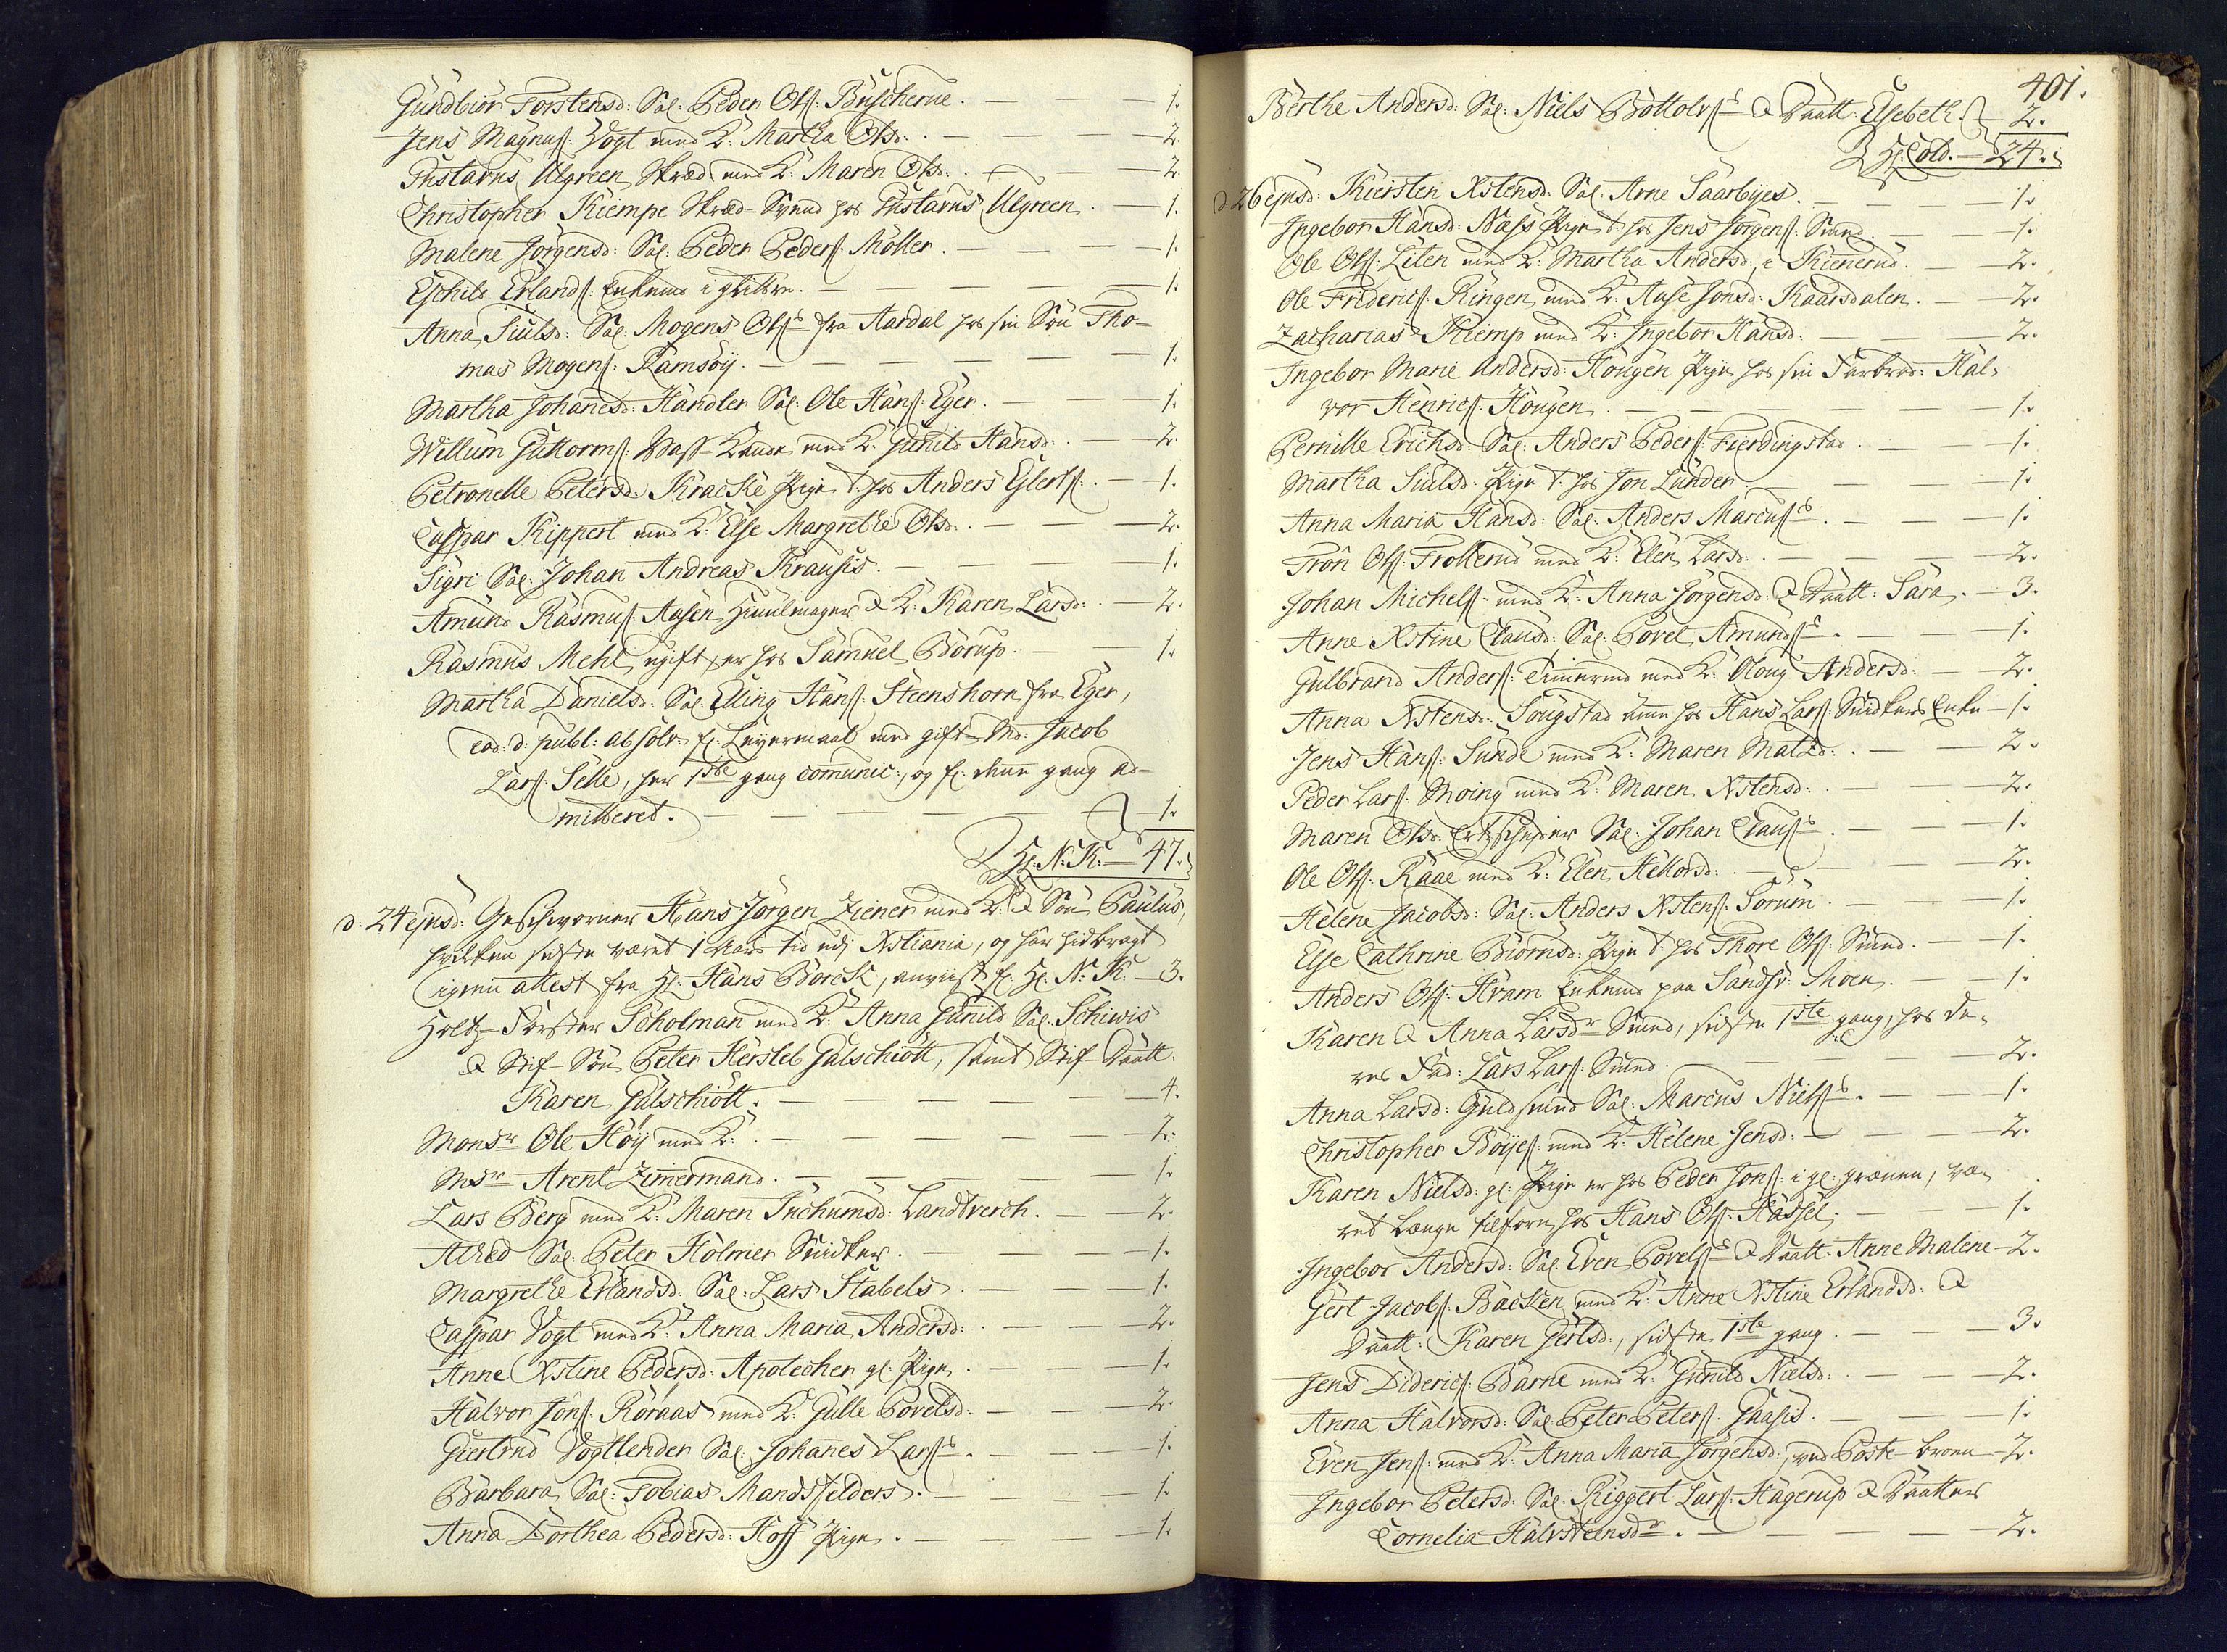 Gundbiör Torstensd: Sal: Peder Olss: Buscherne. — 1.
Jens Magnuss: Vogt med K: Martha Olsd: — 2.
Gustavus Ulgreen Skræd. med K: Maren Olsd: — 2.
Christopher Kiempe Skræd-Svend hos Gustavus Ulgreen — 1.
Malene Jörgensd: Sal: Peder Peders: Möller. — 1.
Eschild Erlands: Enkemd i — 1.
Anna Siulsd: Sal: Mogens Olss fra Aardal hos sin Sön Tho-
mas Mogens: Ramsöÿ. — 1.
Martha Johanesd: Handler Sal: Ole Hans: Eger. — 1.
Willum Guttorms: med K: Gunild Hansd: — 2.
Petronelle Petersd: Kracke Pige t: hos Anders Eglerts: — 1.
Caspar Kippert med K: Else Margrethe Olsd: — 2.
Sigri Sal: Johan Andreas Krausis. — 1.
Amund Rasmus: Aasen Hiuulmager & K: Karen Larsd: — 2.
Rasmus Mehl, ugift, er hos Samuel Borup. — 1.
Martha Danielsd: Sal: Elling Hans: Steenshorn fra Eger,
eod: d: publ: absolv: f: Leyermaal med gift Md: Jacob
Lars: Selle, her 1ste gang comunic:, og f: denne gang ad-
mitteret. — 1.
H: N: K: — 47.
d: 24 ejusd: Geschworner Hans Jörgen Ziener med K: & Sön Paulus,
hvilken sidste været 1 Aars tid udj Xstiania, og har hidbragt
igien attest fra H: Hans Borck, anviist f: H: N: K: — 3.
Holtz-Förster Scholman med K: Anna Gunild Sal: Schiwis
& Stif-Sön Peter Hersleb Gulschiött, samt Stif-Daatt:
Karen Gulschiött. — 4.
Monsr Ole Höÿ med K: — 2.
Msr Arent Zimermand. — 1.
Lars Berg med K: Maren Tuchumsd: Landtverch. — 2.
Alhed Sal: Peter Holmer Snidker. — 1.
Margrethe Erlandsd: Sal: Lars Stabels. — 1.
Caspar Vogt med K: Anna Maria Andersd: — 2.
Anne Xstine Pedersd: Apotecher gl: Pige. — 1.
Halvor Jons: Röraas med K: Gulle Povelsd: — 2.
Giertrud Vogtlender Sal: Johanes Larss. — 1.
Barbara Sal: Tobias Mandsfelders. — 1.
Anna Dorthea Pedersd: Hoff Pige. — 1.
401.
Berthe Andersd: Sal: Niels Bottolvss & Daatt: Elsebeth. — 2.
H: Cold. — 24.
d: 26 ejusd: Kiersten Xstensd: Sal: Arne Saarbyes. — 1.
Ingebor Hansd: Næss Pige t: hos Jens Jörgens: Smed. — 1.
Ole Ols: Liten med K: Martha Andersd: i Kiennerud. — 2.
Ole Frideric: Ringen med K: Aase Jonsd: Kaarsdalen. — 2.
Zacharias Kiemp med K: Ingebor Hansd: — 2.
Ingebor Marie Andersd: Hougen Pige hos sin Farbrod: Hal-
vor Henric: Hougen. — 1.
Pernille Erichsd: Sal: Anders Peders: Fierdingstad. — 1.
Martha Siulsd: Pige t: hos Jon Lunder. — 1.
Anna Maria Hansd: Sal: Anders Marcuss. — 1.
Tron Ols: Trollerud med K: Elen Larsd: — 2.
Johan Michels: med K: Anna Jörgensd: & Daatt: Sara. — 3.
Anne Xstine Clausd: Sal: Povel Amundss. — 1.
Gulbrand Anders: med K: Oloug Andersd: — 2.
Anna Xstensd: Sougstad hos Hans Lars: Snidkers Enke — 1.
Jens Hans: Sunde med K: Maren Matzd: — 2.
Peder Lars: Moing med K: Maren Xstensd: — 2.
Maren Olsd: Ertzscheider Sal: Johan Clauss. — 1.
Ole Ols: Raae med K: Elen Hellorsd: — 2.
Helene Jacobsd: Sal: Anders Xstens: Sörum. — 1.
Else Cathrine Biörnsd: Pige t: hos Thore Ols: Smed. — 1.
Anders Ols: Hvam Enkemd paa Sandsv: Moen. — 1.
Karen & Anna Larsdr Smed, sidste 1ste gang, hos de-
res Fad: Lars Lars: Smed. — 2.
Anna Larsd: Guldsmed Sal: Marcus Nielss. — 1.
Christopher Böÿes: med K: Helene Jensd: — 2.
Karen Nielsd: gl: Pige er hos Peder Jons: i gl: grænen, væ-
ret længe tilforn hos Hans Ols: Hassel. — 1.
Ingebor Andersd: Sal: Even Povelss & Daatt: Anne Malene — 2.
Gert Jacobs: Backen med K: Anne Xstine Erlandsd: &
Daatt: Karen Gertsd:, sidste 1ste gang. — 3.
Jens Dideric: Barne med K: Gunild Nielsd: — 2.
Anna Halvorsd: Sal: Peter Peters: Gaasis. — 1.
Even Jens: med K: Anna Maria Jörgensd:, ved Poste-broen — 2.
Ingebor Petersd: Sal: Riggert Lars: Hagerup & Daatter
Cornelia Halvsteensdr. — 2.